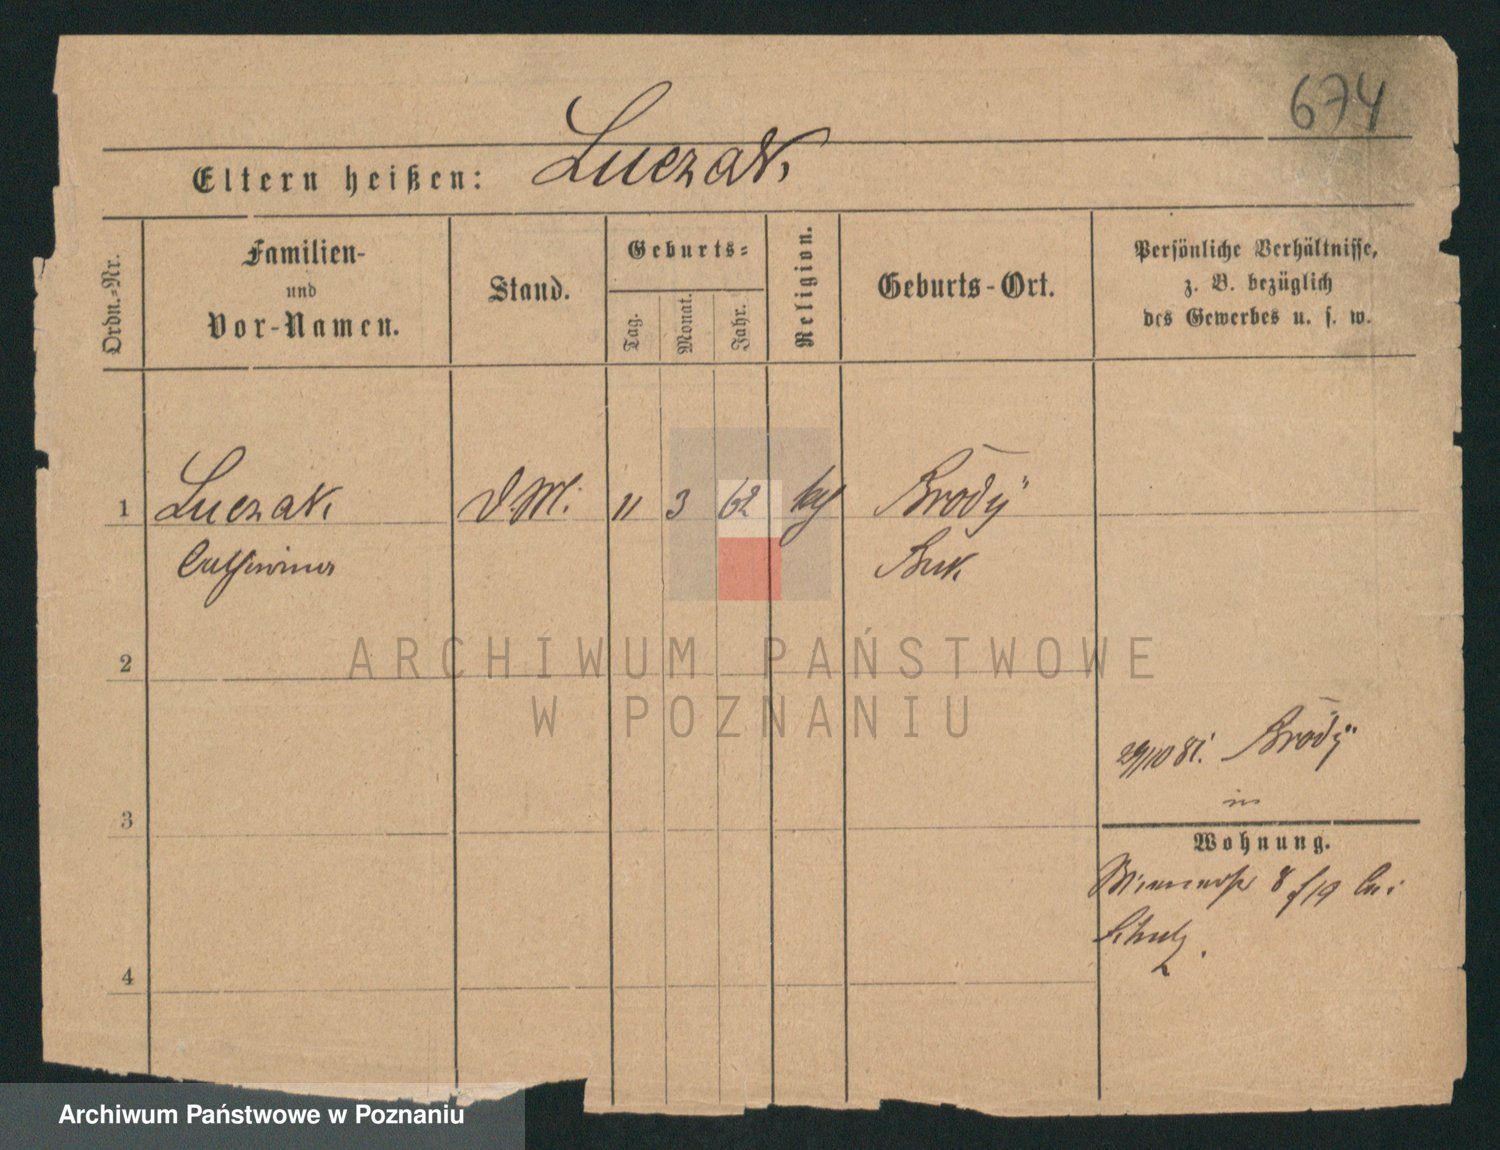 674
Eltern heißen: Luczak.
Ordn.-Nr.
Familien-
und
Vor-Namen.
Stand.
Geburts=
Tag.
Monat.
Jahr.
Religion.
Geburts-Ort.
Persönliche Verhältnisse,
z. B. bezüglich
des Gewerbes u. s. w.
1 Luczak, D.M. 11 3 62 Brody
Catharina Buk.
2
ARCHIWUM PAŃSTWOWE
W POZNANIU
29/10 81. Brody
3
Wohnung.
8 19 bei
Schulz.
4
Archiwum Państwowe w Poznaniu